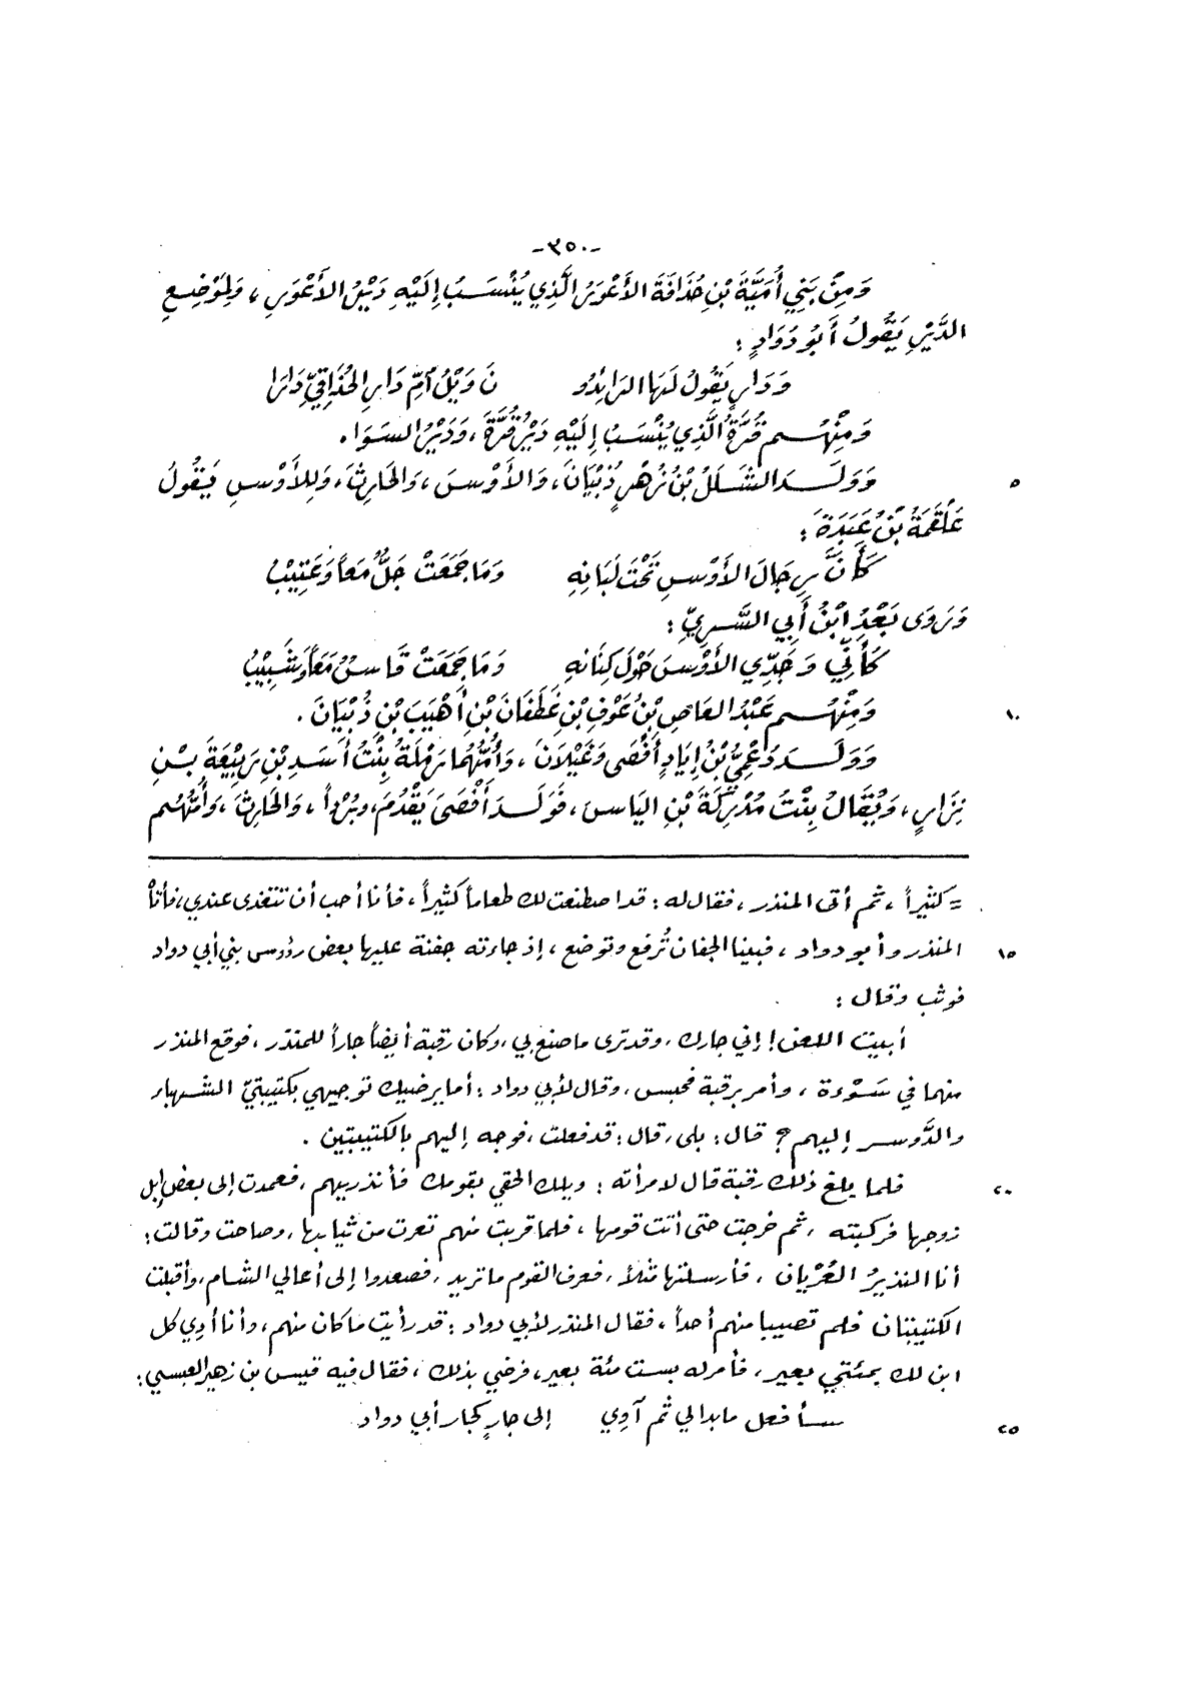 -٣٥٠-
وَمِنْ بَنِي أُمَيَّةَ بْنِ حُذَافَةَ الأَعْوَرُ الَّذِي يُنْسَبُ إِلَيْهِ دَيْرُ الأَعْوَرِ، وَلِمَوْضِعِ
الدَّيْرِ يَقُولُ أَبُو دُوَادٍ :
وَدَارٍ يَقُولُ لَهَا الرَائِدُو نَ وَيْلُ أمِّ دَارِ الحُذَاقِيِّ دَارَا
وَمِنْهُم قُرَّةُ الَّذِي يُنْسَبُ إِلَيْهِ دَيْرُ قُرَّةَ، وَدَيْرُ السَوَا.
٥ وَوَلَدَ الشَلَلُ بْنُ زُهْرٍ ذُبْيَانَ، وَالأَوْسَ، وَالحَارِثَ، وَلِلأَوْسِ يَقُولُ
عَلْقَمَةُ بْنُ عَبَدَةَ :
كَأَنَّ رِجَالَ الأَوْسِ تَحْتَ لَبَانِهِ وَمَا جَمَعَتْ جَلٌّ مَعاً وَعَتِيْبُ
وَرَوَى بَعْدُ ابْنُ أَبِي السَّرِيِّ :
كَأَنِّي وَجَدِّي الأَوْسَ حَوْلَ كِنَانهِ وَمَا جَمَعَتْ قَاسٌ مَعَاً وَشَبِيْبُ
١٠ وَمِنْهُم عَبْدُ العَاصِ بْنُ عَوْفِ بْنِ غَطَفَانَ بْنِ أَهْيَبَ بْنِ ذُبْيَانَ.
وَوَلَدَ دُعْمِيُّ بْنُ إِيَادٍ أَفْصَى وَغَيْلَانَ، وَأُمُّهُمَا رَمْلَةُ بِنْتُ أَسَدِ بْنِ رَبِيْعَةَ بْنِ
نِزَارٍ، وَيُقَالُ بِنْتُ مُدْرِكَةَ بْنِ اليَاسَ، فَوَلَدَ أَفْصَى يَقْدُمَ، وبُرْداً، وَالحَارِثَ، وَأُمُّهُم
= كثيراً، ثم أتى المنذر، فقال له : قد اصطنعت لك طعاماً كثيراً، فأنا أحب أن تتغدى عندي، فأتاه
١٥ المنذر وأبو دواد، فبينا الجفان تُرفع وتوضع، إذ جاءته جفنة عليها بعض رؤوس بني أبي دواد
فوثب وقال :
أبيت اللعن! إني جارك، وقد ترى ما صنع بي، وكان رقبة أيضاً جاراً للمنذر، فوقع المنذر
منهما في سَوْءة، وأمر برقبة فحبس، وقال لأبي دواد : أما يرضيك توجيهي بكتيبتيّ الشهباء
والدَّوسر إليهم؟ قال : بلى، قال : قد فعلت، فوجه إليهم بالكتيبتين.
٢٠ فلما بلغ ذلك رقبة قال لامرأته : ويلك الحقي بقومك فأنذريهم، فعمدت إلى بعض إبل
زوجها فركبته، ثم خرجت حتى أتت قومها، فلما قربت منهم تعرت من ثيابها، وصاحت وقالت :
أنا النذيرُ العُرْيان، فأرسلتها مثلاً، فعرف القوم ما تريد، فصعدوا إلى أعالي الشام، وأقبلت
الكتيبتان فلم تصيبا منهم أحداً، فقال المنذر لأبي دواد : قد رأيت ما كان منهم، وأنا أدِي كل
ابن لك بمئتي بعير، فأمر له بست مئة بعير، فرضي بذلك، فقال فيه قيس بن زهير العبسي :
٢٥ سأفعل ما بدا لي ثم آوِي إلى جارٍ كجار أبي دواد